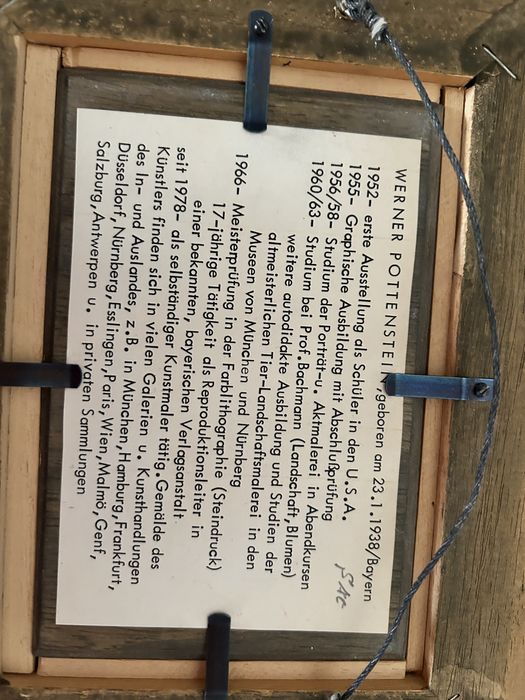 WERNER POTTENSTEI geboren am 23.1.1938/Bayern
1952- erste Ausstellung als Schüler in den U.S.A.
1955- Graphische Ausbildung mit Abschlußprüfung
1956/58- Studium der Porträt-u. Aktmalerei in Abendkursen
1960/63- Studium bei Prof.Bachmann (Landschaft,Blumen)
weitere autodidakte Ausbildung und Studien der
altmeisterlichen Tier-Landschaftsmalerei in den
Museen von München und Nürnberg
1966- Meisterprüfung in der Farblithographie (Steindruck)
17-jährige Tätigkeit als Reproduktionsleiter in
einer bekannten, bayerischen Verlagsanstalt
seit 1978- als selbständiger Kunstmaler tätig.Gemälde des
Künstlers finden sich in vielen Galerien u. Kunsthandlungen
des In- und Auslandes, z.B. in München,Hamburg,Frankfurt,
Düsseldorf,Nürnberg,Esslingen,Paris,Wien,Malmö,Genf,
Salzburg,Antwerpen u. in privaten Sammlungen